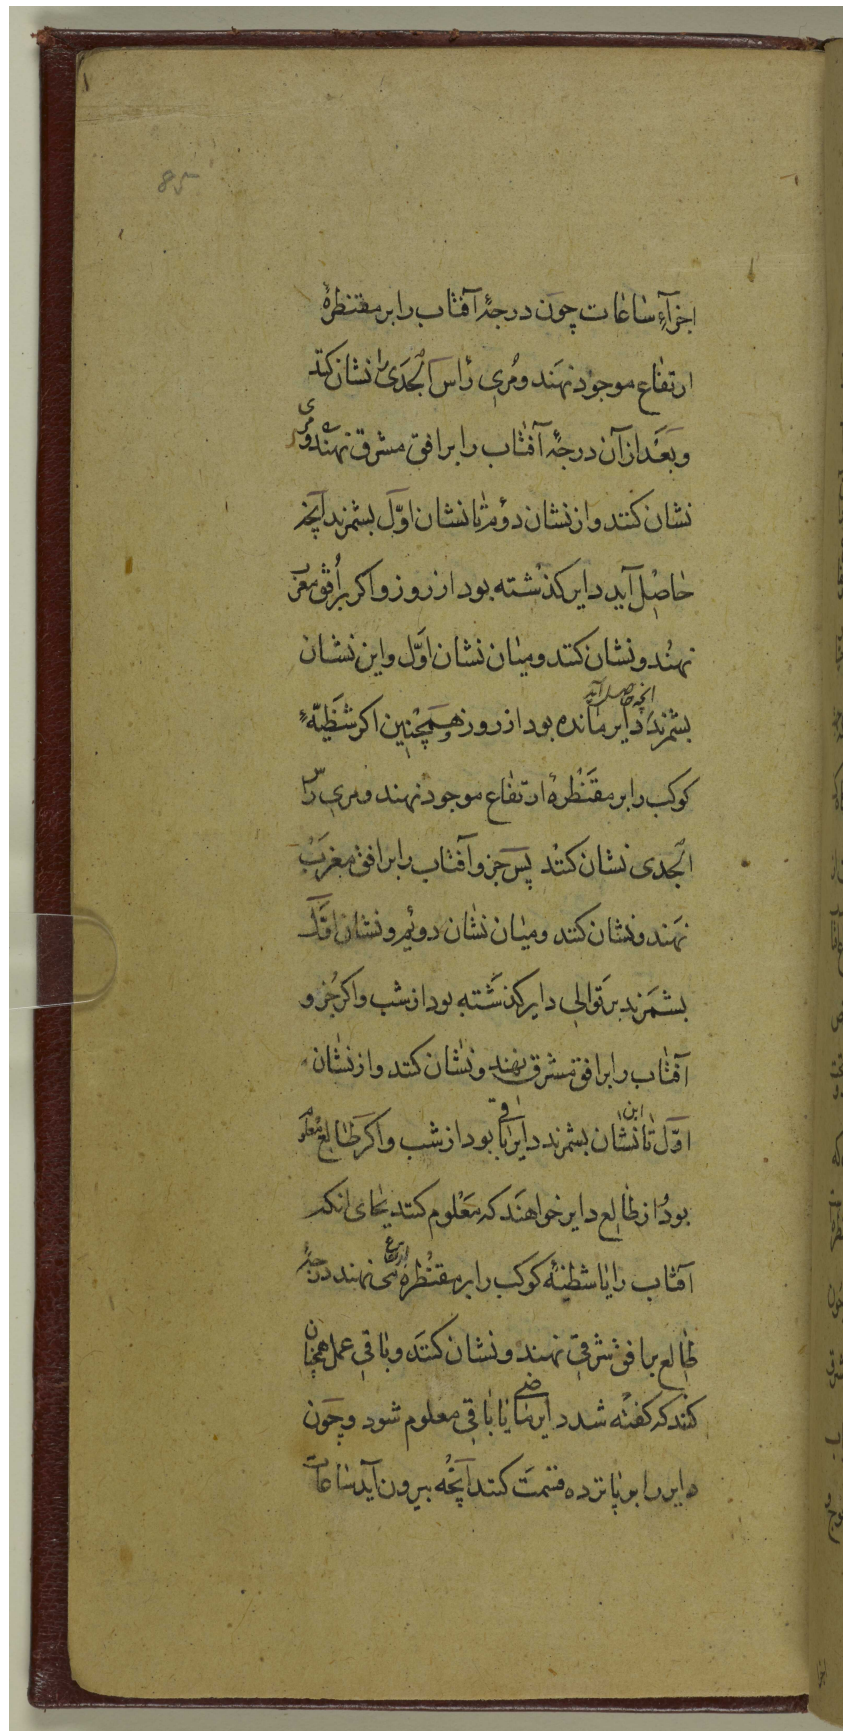 85
اجزآءِ ساعات چون درجهٔ آفتاب را بر مقنطرهٔ
ارتفاع موجود نهند و مُرىِ رٰاس الجَدَى را نشان كنند
و بَعَد از آن درجهٔ آفتاب را بر افق مشرق نهند و مرى
نشان كنند و از نشان دوُم تا نشان اوّل بشمرند آنچه
حٰاصِل آيد داير كذشته بود از روز و اكر بر اُفق مغرب
نهند و نشان كنند و ميٰان نشان اوَّل و اين نشان
بشمرند انچه حاصل آيد داير مٰانده بود از روز و همچنين اكر شظيّهٔ
كوكب را بر مقنطرهٔ ارتفاع موجود نهند و مرى راس
الجدى نشان كنند پس جزو آفتاب را بر افق مغرب
نهند و نشان كنند و ميٰان نشان دويُم و نشان اوّل
بشمَرند بر توالى داير كذشته بود از شب و اكر جُزو
آفتاب را بر افق مشرق نهند و نشان كنند و از نشان
اوّل تا اين نشان بشمرند داير باقى بود از شب و اكر طالع معلوم
بوُد از طٰالِع داير خواهند كه معْلوم كنند بجٰاى انكه
آفتاب را يا شظيّهٔ كوكب را بر مقنْطرهٔ ارتفاع مى نهند درجهٔ
طٰالع بر افق شرقى نهند و نشان كنند و بٰاقى عمل همچنان
كنند كه كفته شد داير ماضى يا باقى معلوم شود و چون
داير را بر پانزده قسمَت كنند آنچه بيرون آيد ساعات